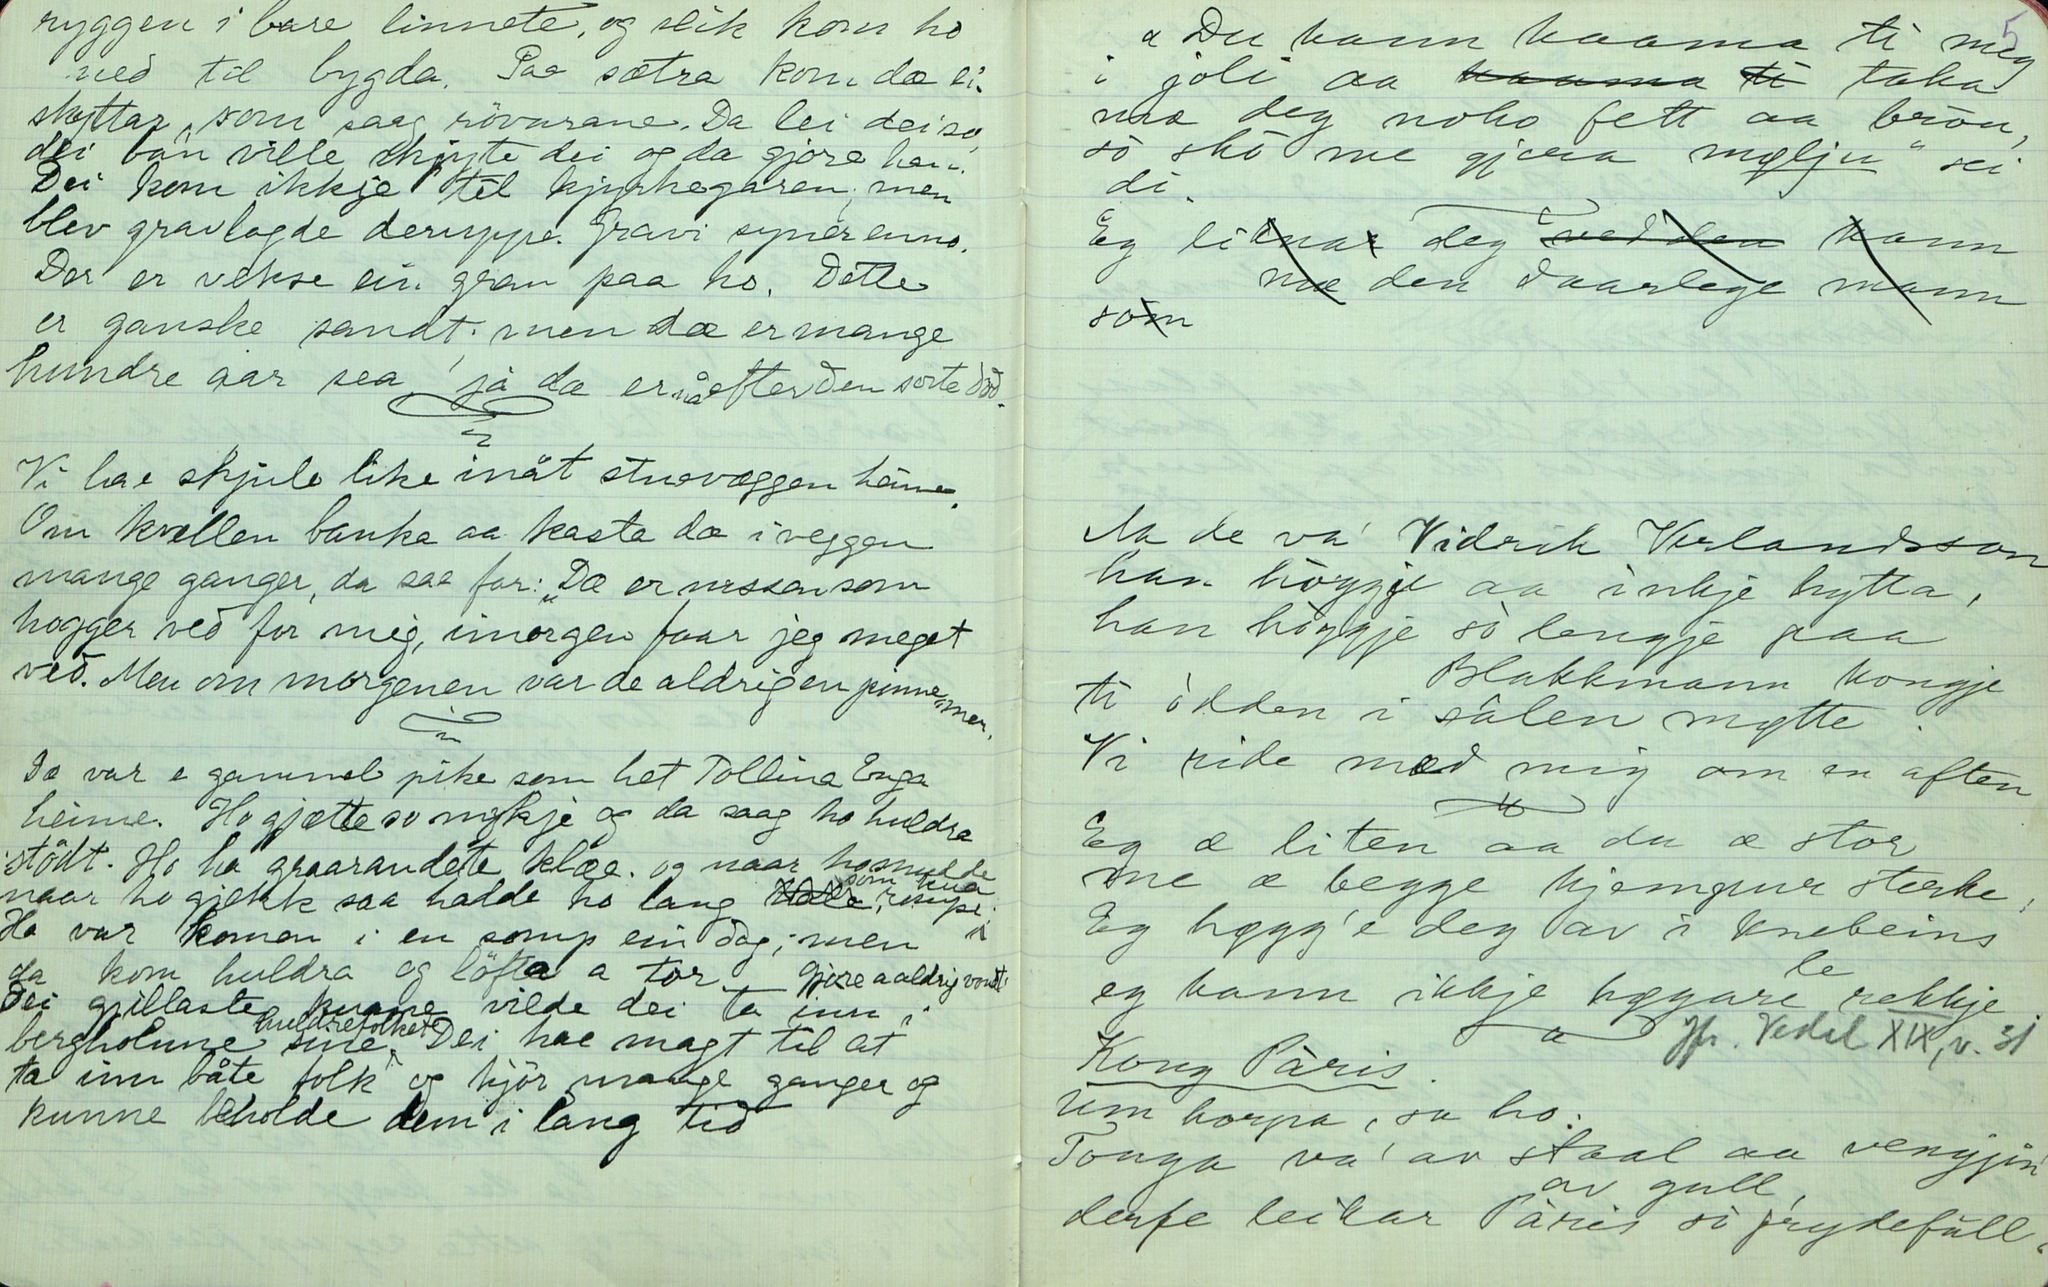 ryggen i bare linnete, og slik kom ho
ned til bygda. Paa sætra kom dæ ei
skyttar, som saag rövarane. Da lei dei so,
dei ban ville skjyte dei og da gjore han.
Dei kom ikkje til kjyrkegaren, men
blev gravlagde deruppe. Gravi syner enno.
Der er vekse ein gran paa ho. Dette
er ganske sandt; men dæ er mange
hundre aar sea, ja da er nå efter den sorte död.
Vi hae skjule like inåt stuevæggen heime.
Om kvellen banka aa kasta dæ i veggen
mange ganger, da saa far: „Dæ er nissen som
hogger ved for mig, imorgen faar jeg meget
ved. Men om morgenen var de aldrig en pinne mer.
Dæ var e gammel pike som het Tollina Enga
heime. Ho gjætte so mykje og da saag ho huldra
stödt. Ho ha graarandete klæe. og naar ho snudde
naar ho gjekk saa hadde ho lang som kua rumpe.
Ho var komen i en somp ein dag; men
da kom huldra og löfta a tor. Gjore a aldrig vondt
Dei gjillaste kuane vilde dei ta inn i
bergholune sine huldrefolket. Dei hae magt til at
ta inn båte folk og kjör mange ganger og
kunne beholde dem i lang tid
5
„Du kann kaama ti meg
i joli aa kaama ti taka
mæ deg noko fett aa bröu,
so sko me gjæra mylju“ sei
di.
Eg liknar deg ved den kann
mæ den daarlege mann
som
Aa de va' Vidrik Verlandsson
han höggje aa inkje hytta,
han höggje so lengje paa
Blakkmann kongje
ti odden i sålen mytte.
Vi ride med mig om en aften
Eg æ liten aa du æ stor
me æ begge kjempur sterke,
Eg hygg'e deg av i knebeins
le
eg kann ikkje hygare rekkje
Jfr. Vedel XIX, v. 31
Kong Påris.
Um horpa, sa ho:
Tonga va' av staal aa vengjin
av gull,
derfe leikar Påris so prydefull.